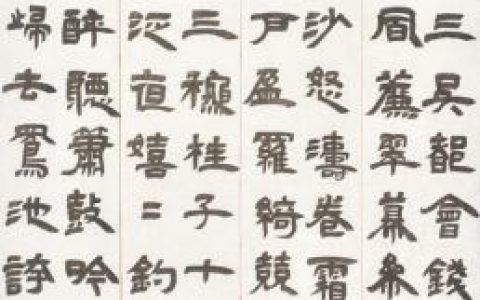 三吳都會錢
風簾翠幕參
沙怒濤卷霜
戶盈羅綺競
三穐桂子十
泛夜嬉〻釣
醉聽簫鼓吟
歸去鳳池誇